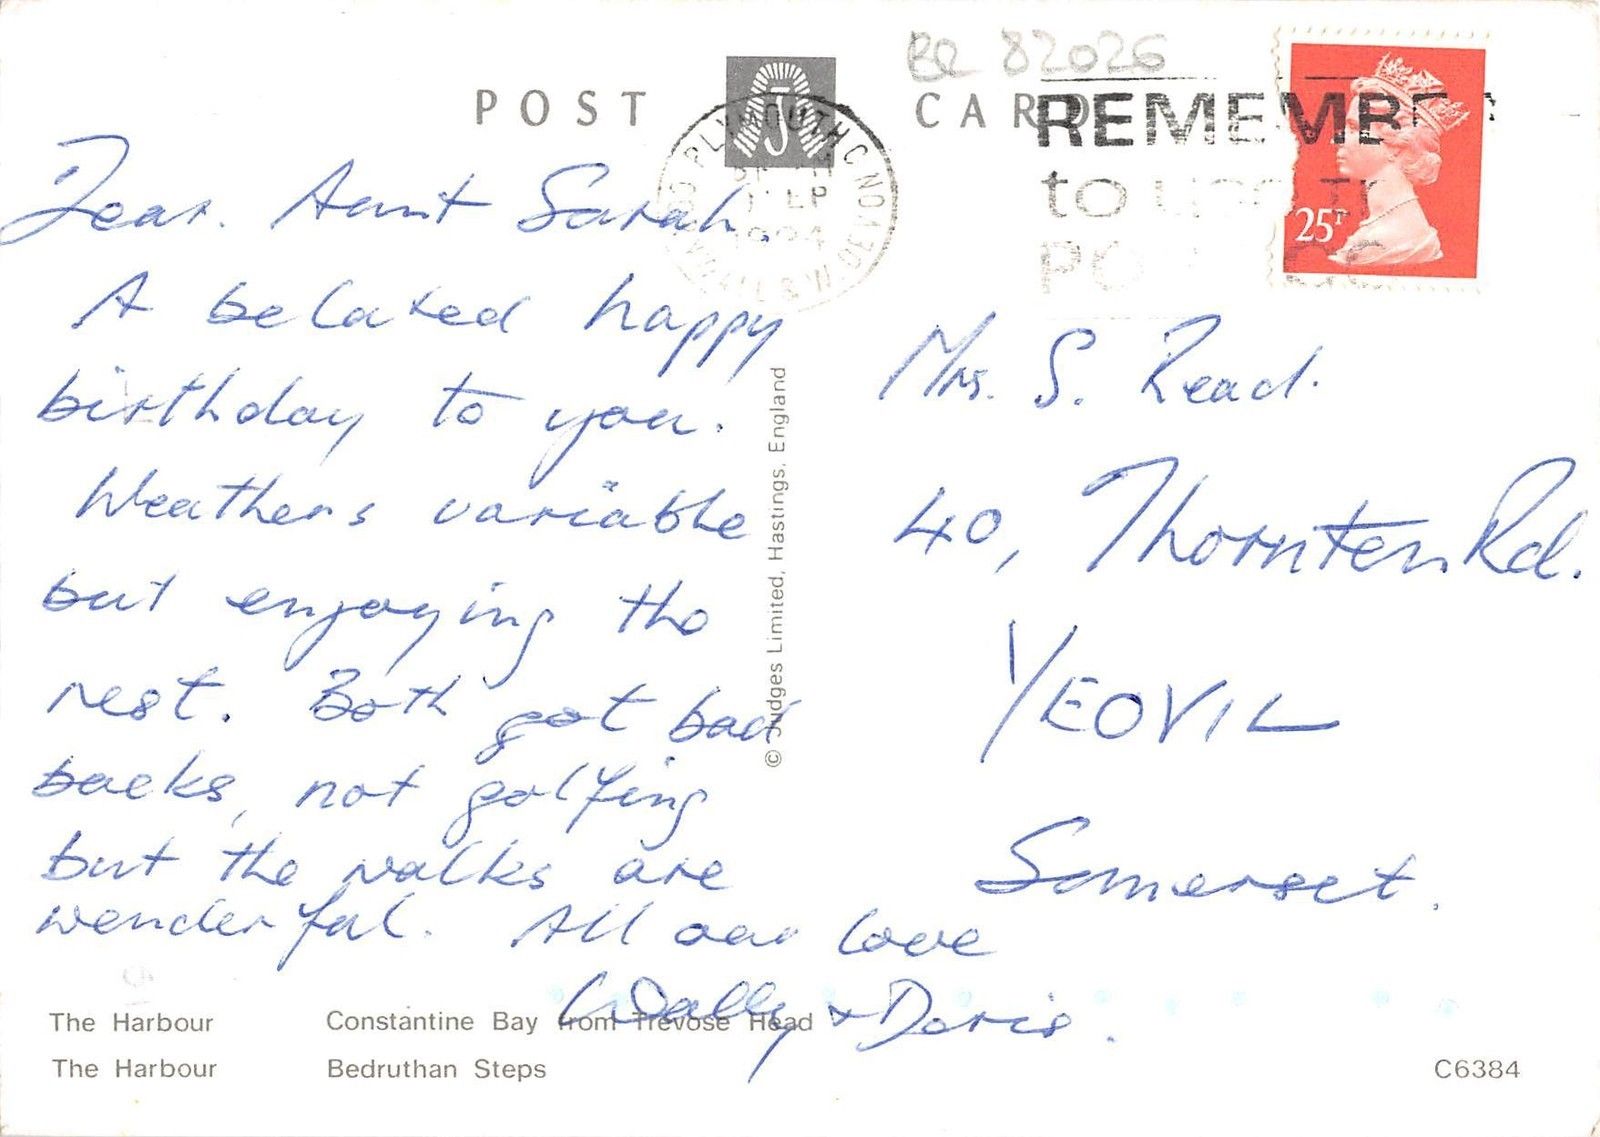 BR 82026
POST CARD
PLYMOUTH CORNWALL & W. DEVON
1994
REMEMBER
to use
25P
Dear. Aunt Sarah.
A belated happy
birthday to you.
Weathers variable
but enjoying the
rest. Both got bad
backs, not golfing
but the walks are
wonderful. All our love
Wally & Doris.
© Judges Limited, Hastings, England
Mrs. S. Read.
40, Thornton Rd.
YEOVIL
Somerset.
The Harbour Constantine Bay from Trevose Head
The Harbour Bedruthan Steps
C6384